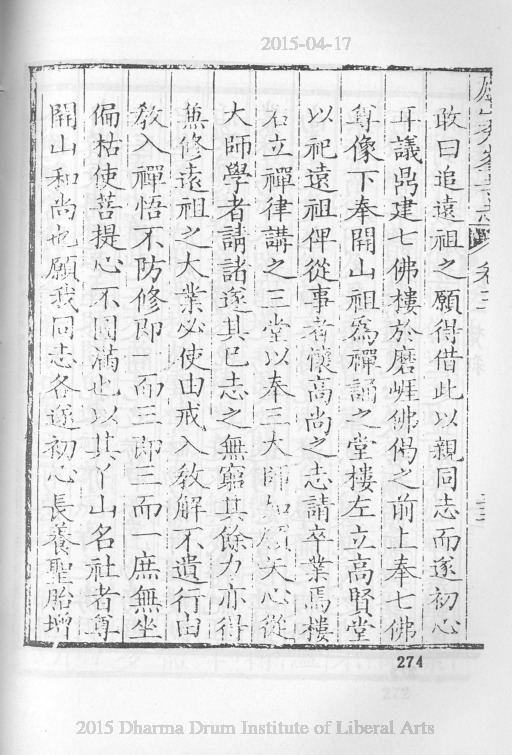 2015-04-17
敢曰追遠祖之願得借此以親同志而遂初心
耳議鼎建七佛樓於磨崕佛偈之前上奉七佛
尊像下奉開山祖為禪誦之堂樓左立高賢堂
以祀遠祖俾從事者懷高尚之志請卒業焉樓
右立禪律講之三堂以奉三大師如願夫心從
大師學者請諸遂其已志之無窮其餘力亦得
兼修遠祖之大業必使由戒入敎解不遺行由
敎入禪悟不防修即一而三即三而一庶無坐
偏枯使菩提心不圓滿也以其丫山名社者尊
開山和尚也願我同志各遂初心長養聖胎增
卷三
274
2015 Dharma Drum Institute of Liberal Arts